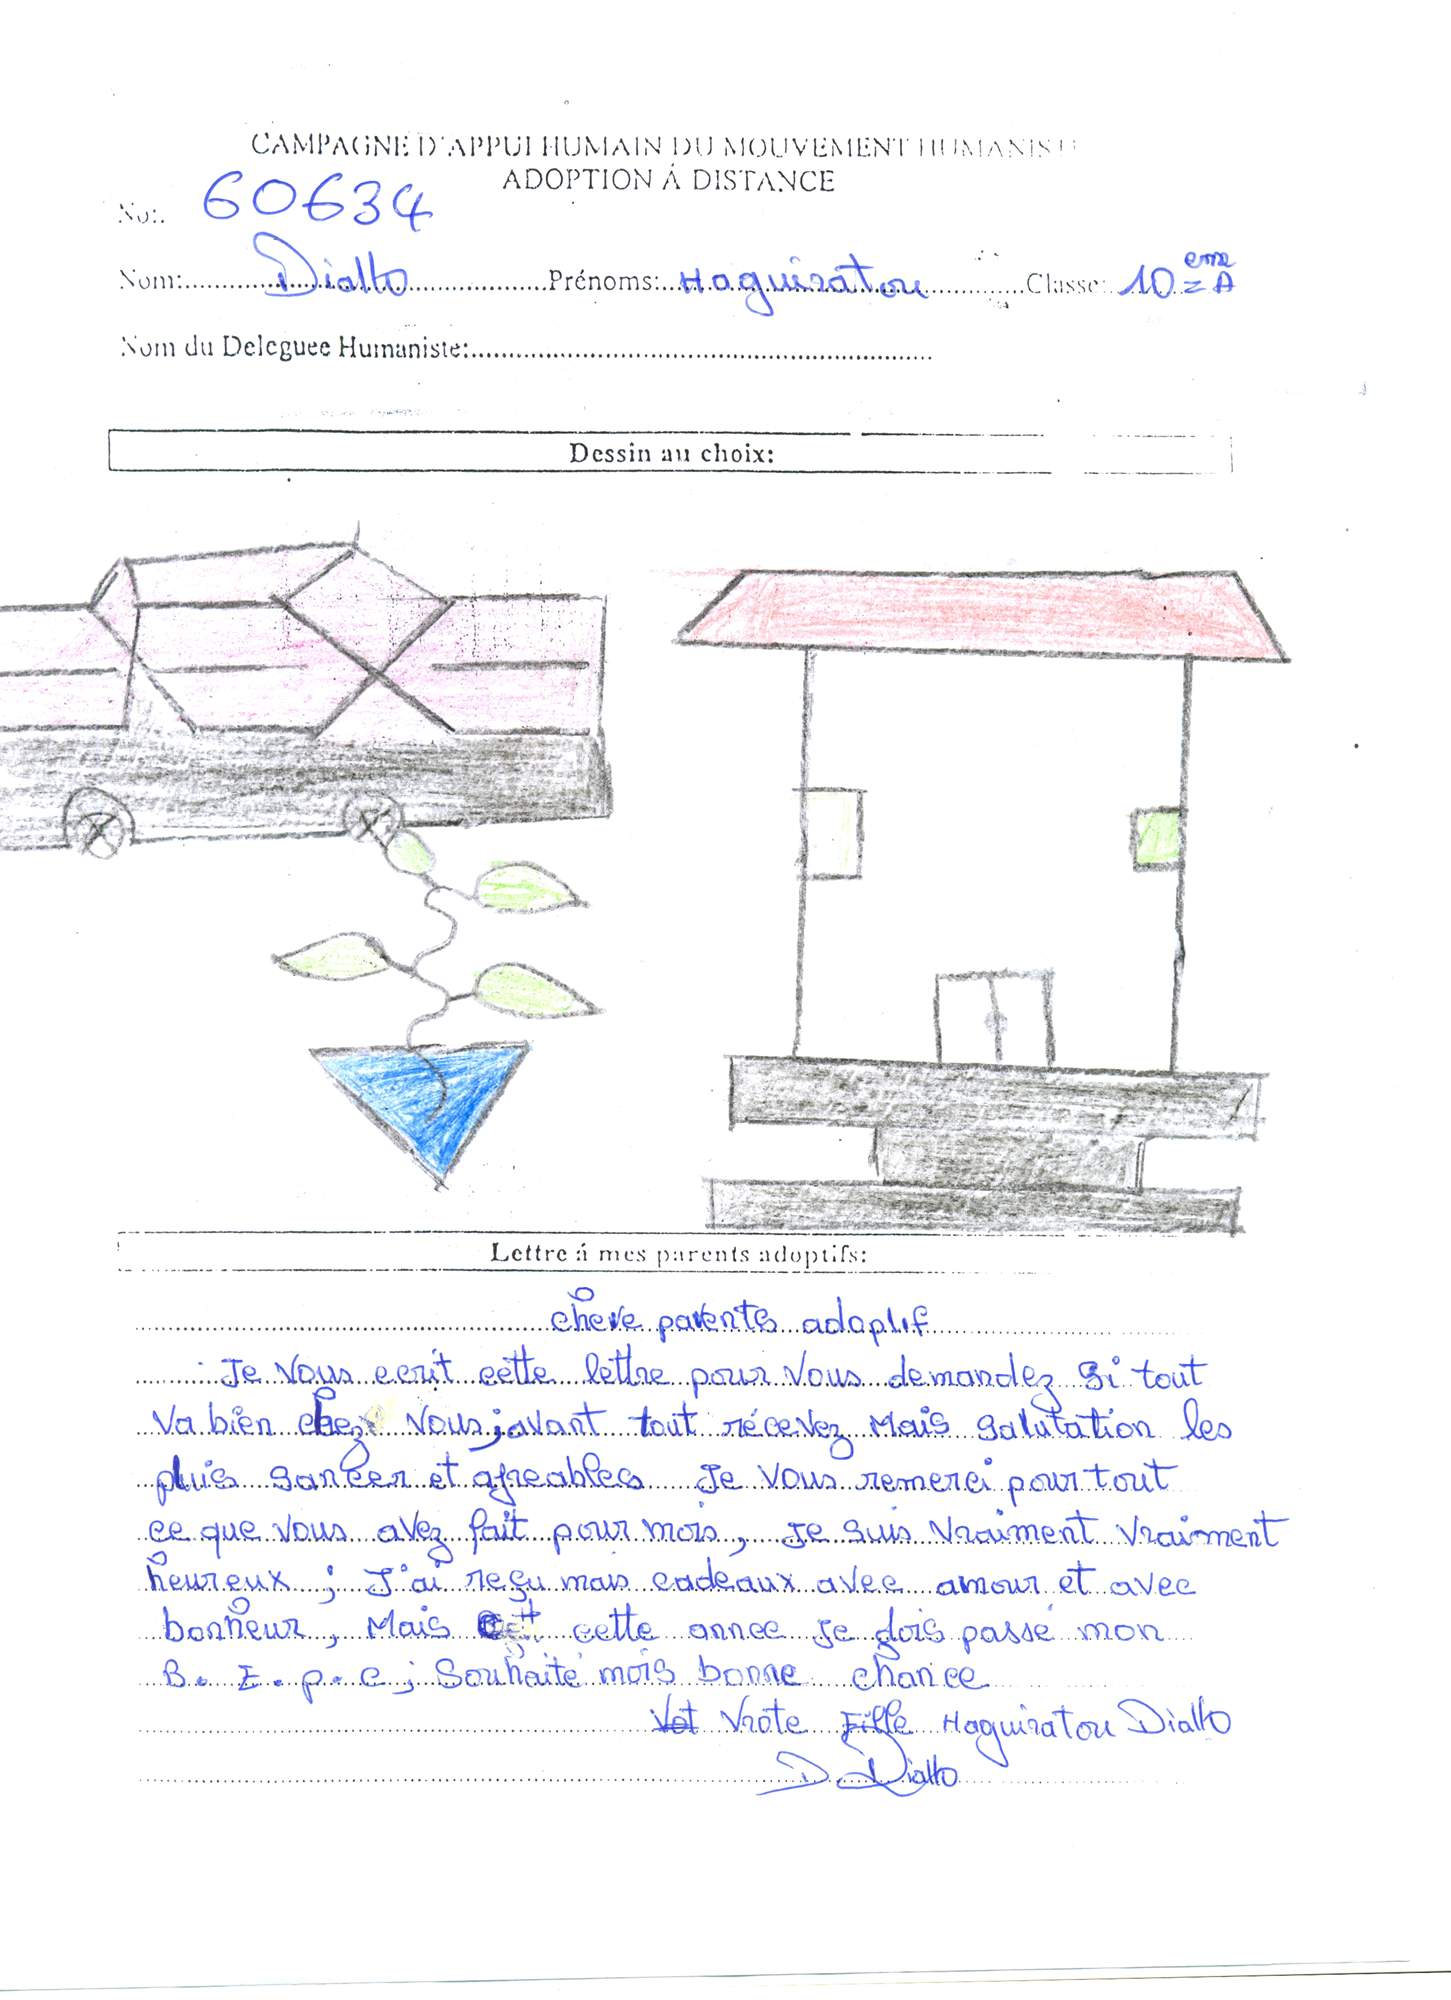 CAMPAGNE D'APPUI HUMAIN DU MOUVEMENT HUMANISTE
ADOPTION Á DISTANCE
No:. 60634
Nom: Diallo Prénoms: Haguiratou Classe: 10 em A
Nom du Deleguee Humaniste:
Dessin au choix:
Lettre á mes parents adoptifs:
chere parents adoptif
Je vous ecrit cette lettre pour vous demandez si tout
va bien chez vous; avant tout récevez Mais salutation les
plus sancer et agreables Je vous remerci pour tout
ce que vous avez fait pour mois, Je suis vraiment vraiment
heureux ; J'ai reçu mais cadeaux avec amour et avec
bonheur, Mais cette annee Je dois passé mon
B. E. p. c; Souhaité mois bonne chance
Vot Vrote Fille Haguiratou Diallo
D. Diallo